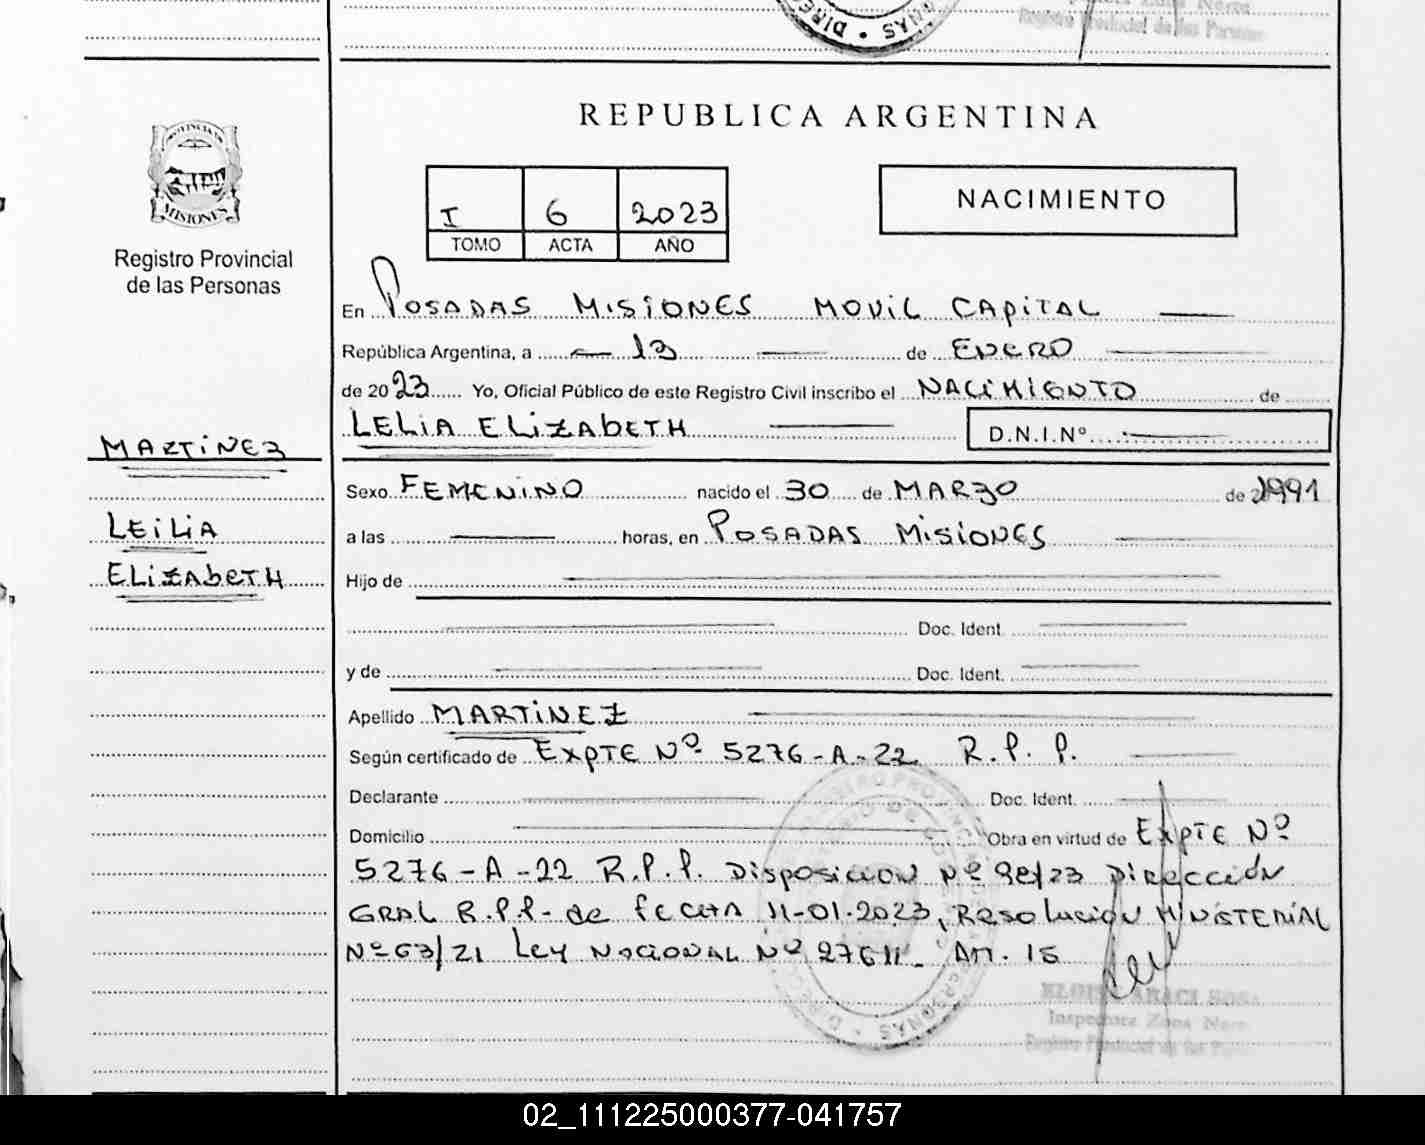 Registro Provincial de las Personas
REPUBLICA ARGENTINA
PROVINCIA DE
MISIONES
Registro Provincial
de las Personas
I 6 2023
TOMO ACTA AÑO
NACIMIENTO
En POSADAS MISIONES MOVIL CAPITAL
República Argentina, a 13 de ENERO
de 2023 Yo, Oficial Público de este Registro Civil inscribo el NACIMIENTO de
LELIA ELIZABETH D.N.I.Nº
MARTINEZ
Sexo FEMENINO nacido el 30 de MARZO de 1991
LEILIA
a las horas, en POSADAS MISIONES
ELIZABETH
Hijo de
Doc. Ident.
y de Doc. Ident.
Apellido MARTINEZ
Según certificado de EXPTE Nº 5276-A-22 R.P.P.
Declarante Doc. Ident.
Domicilio Obra en virtud de EXPTE Nº
5276-A-22 R.P.P. DISPOSICION Nº 98/23 DIRECCIÓN
GRAL R.P.P- de FECHA 11-01-2023, RESOLUCION MINISTERIAL
Nº 63/21 LEY NACIONAL Nº 27611- Art. 15
Inspectora Zona Norte
02_111225000377-041757